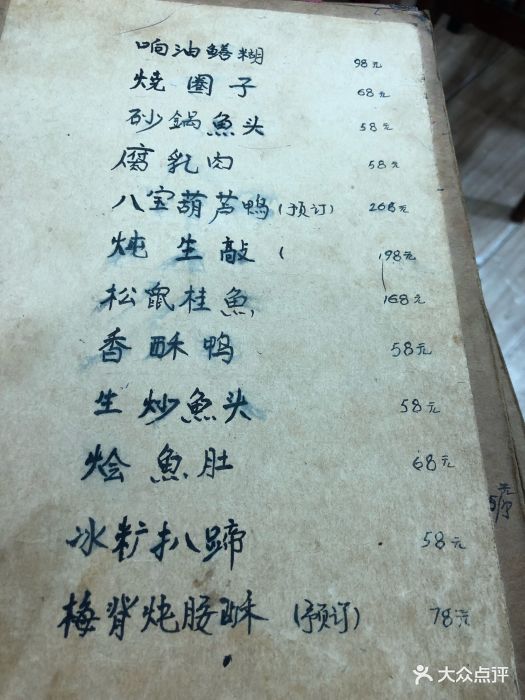 响油鳝糊 98元
烧圈子 68元
砂锅魚头 58元
腐乳肉 58元
八宝葫芦鸭(预订) 268元
炖生敲( 198元
松鼠桂魚 168元
香酥鸭 58元
生炒魚头 58元
烩魚肚 68元
冰籿扒蹄 58元
梅背炖腰酥(预订) 78元
大众点评